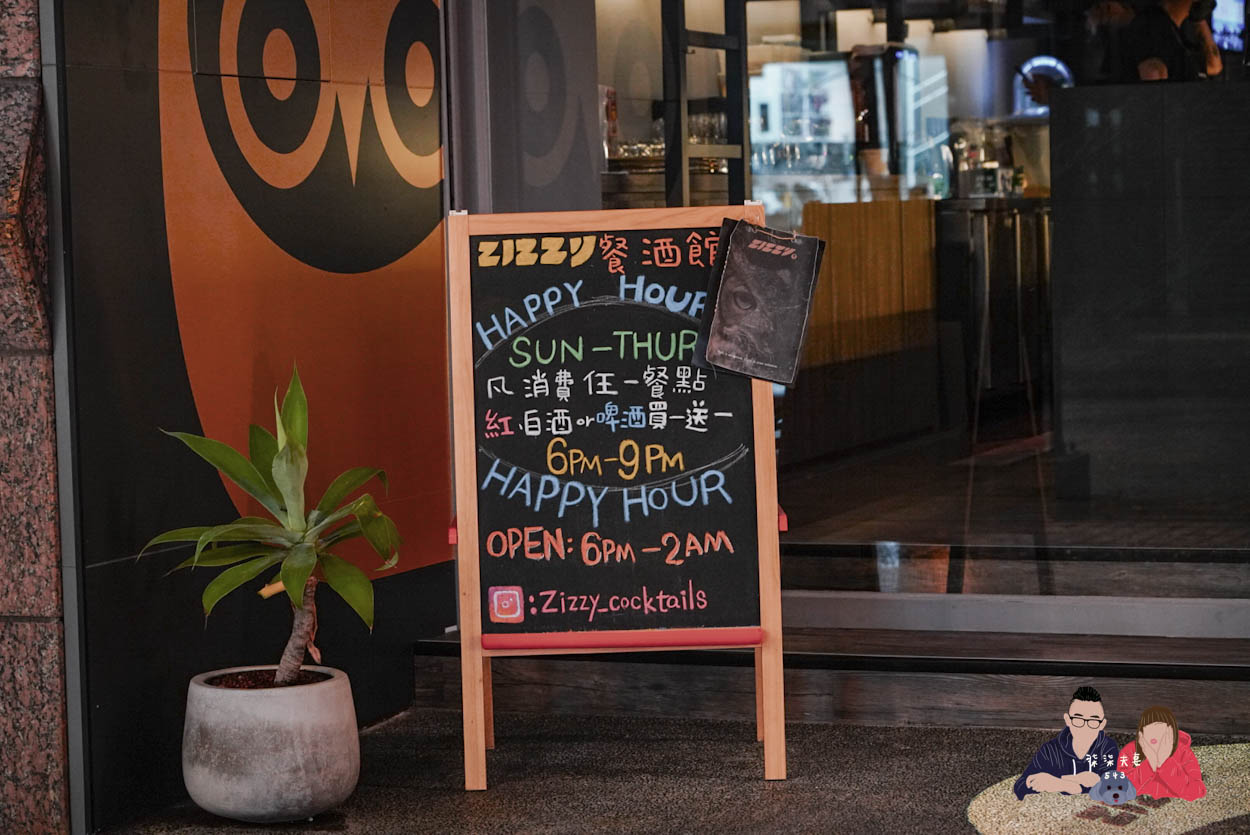 ZIZZY餐酒館
ZIZZY
HAPPY HOUR
SUN-THUR
凡消費任一餐點
紅.白酒or啤酒買一送一
6PM-9PM
HAPPY HOUR
OPEN: 6PM-2AM
:Zizzy_cocktails
柒柒夫妻
543